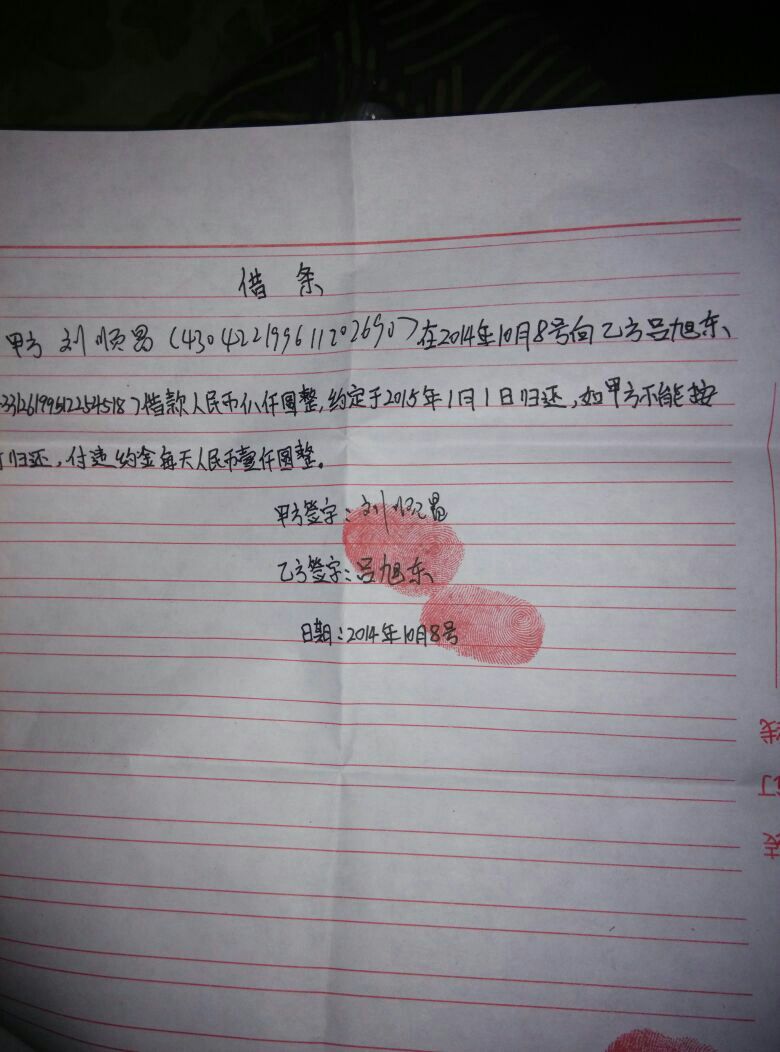 借条
甲方 刘顺昌（430422199611202690）在2014年10月8号向乙方吕旭东、
331261995122545187借款人民币仈仟圆整,约定于2015年1月1日归还,如甲方不能按
归还,付违约金每天人民币壹仟圆整。
甲方签字:刘顺昌
乙方签字:吕旭东
日期:2014年10月8号
线
订
装